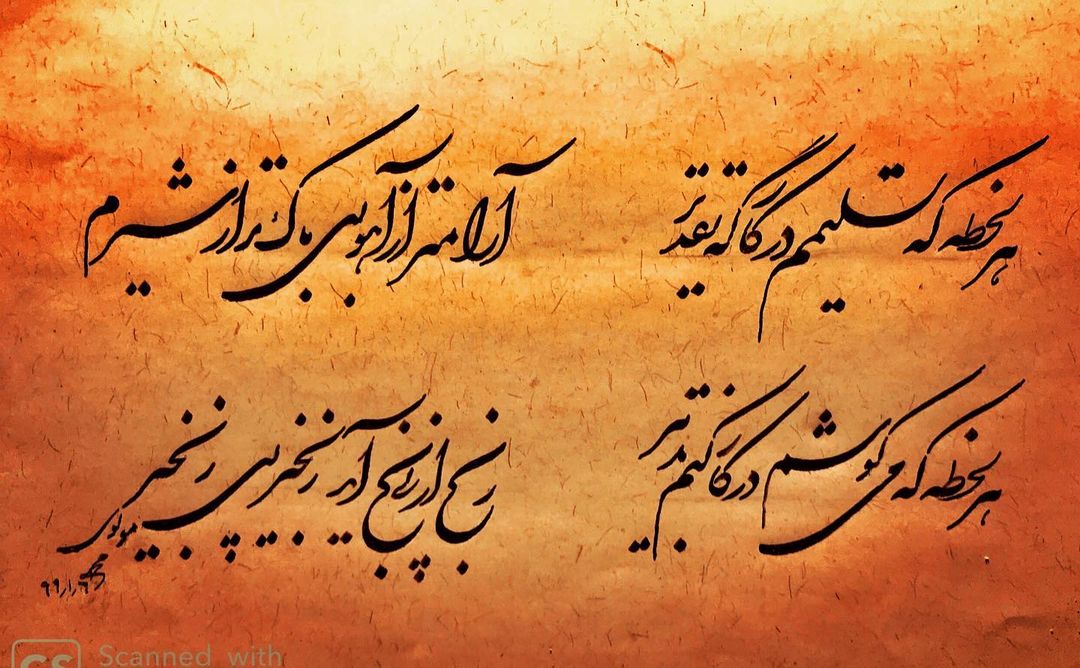 هر لحظه که تسلیمم در کارگه تقدیر
آرامتر از آهو بی باک ترا ز شیرم
هر لحظه که می کوشم در کار کنم تدبیر
رنج از پی رنج آید زنجیر پی زنجیر
مولوی
Scanned with
CS